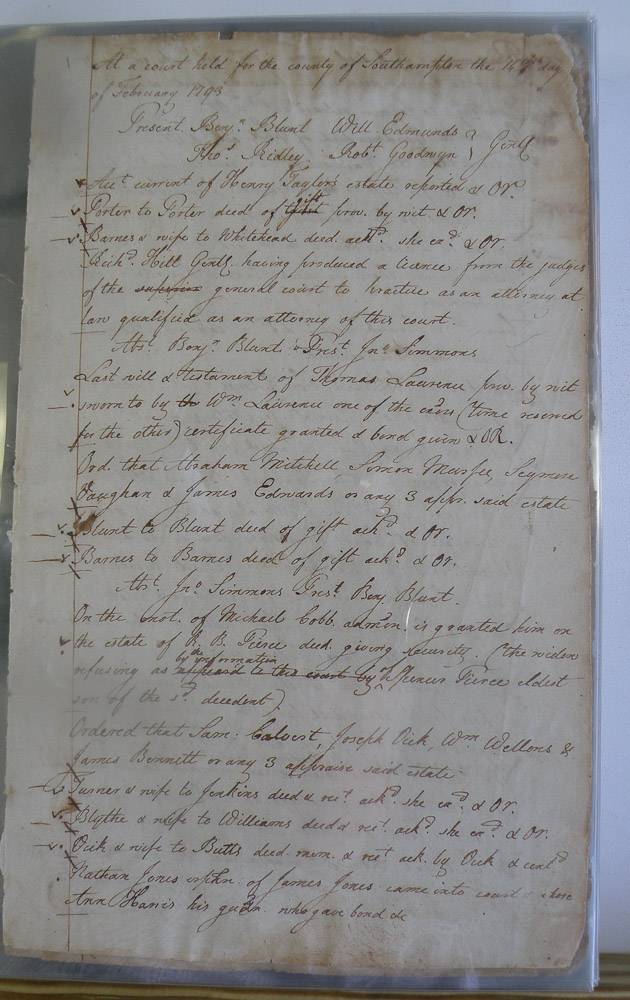 At a court held for the county of Southampton the 14th day
of February 1793
Present Benjn. Blunt Will Edmunds } Gentl
Thos. Ridley Robt. Goodwyn
Acct. current of Henry Taylor's estate reported & Or.
Porter to Porter deed of gift prov. by wit & Or.
Barnes & wife to Whitehead deed ackd. she exd. & Or.
Richd. Hill Gentl. having produced a licence from the judges
of the superior general court to practise as an attorney at
law qualified as an attorney of this court.
Abst. Benjn. Blunt & Prest. Jno. Simmons
Last will & testament of Thomas Laurence prov. by wit
sworn to by th Wm. Laurence one of the exors (time reserved
for the other) certificate granted & bond given & OR.
Ord. that Abraham Mitchell, Simon Murfee, Seymore
Vaughan & James Edwards or any 3 appr. said estate
Blunt to Blunt deed of gift ackd. & Or.
Barnes to Barnes deed of gift ackd. & Or.
Abst. Jno. Simmons Prest. Benj Blunt.
On the mot. of Michael Cobb admon. is granted him on
the estate of R. B. Pierce deed. giving security. (the widow
refusing as appeard to this court by by the information of Spencer Pierce eldest
son of the sd. decedent)
Ordered that Sam: Calvert, Joseph Dick, Wm. Wellons &
James Bennett or any 3 appraise said estate
Turner & wife to Jenkins deed & rect. ackd. she exd. & Or.
Blythe & wife to Williams deed & rect. ackd. she exd. & Or.
Dick & wife to Butts deed mem. & rect ack. by Dick &
Nathan Jones orphn. of James Jones came into court & chose
Ann Harris his gudn. who gave bond &c